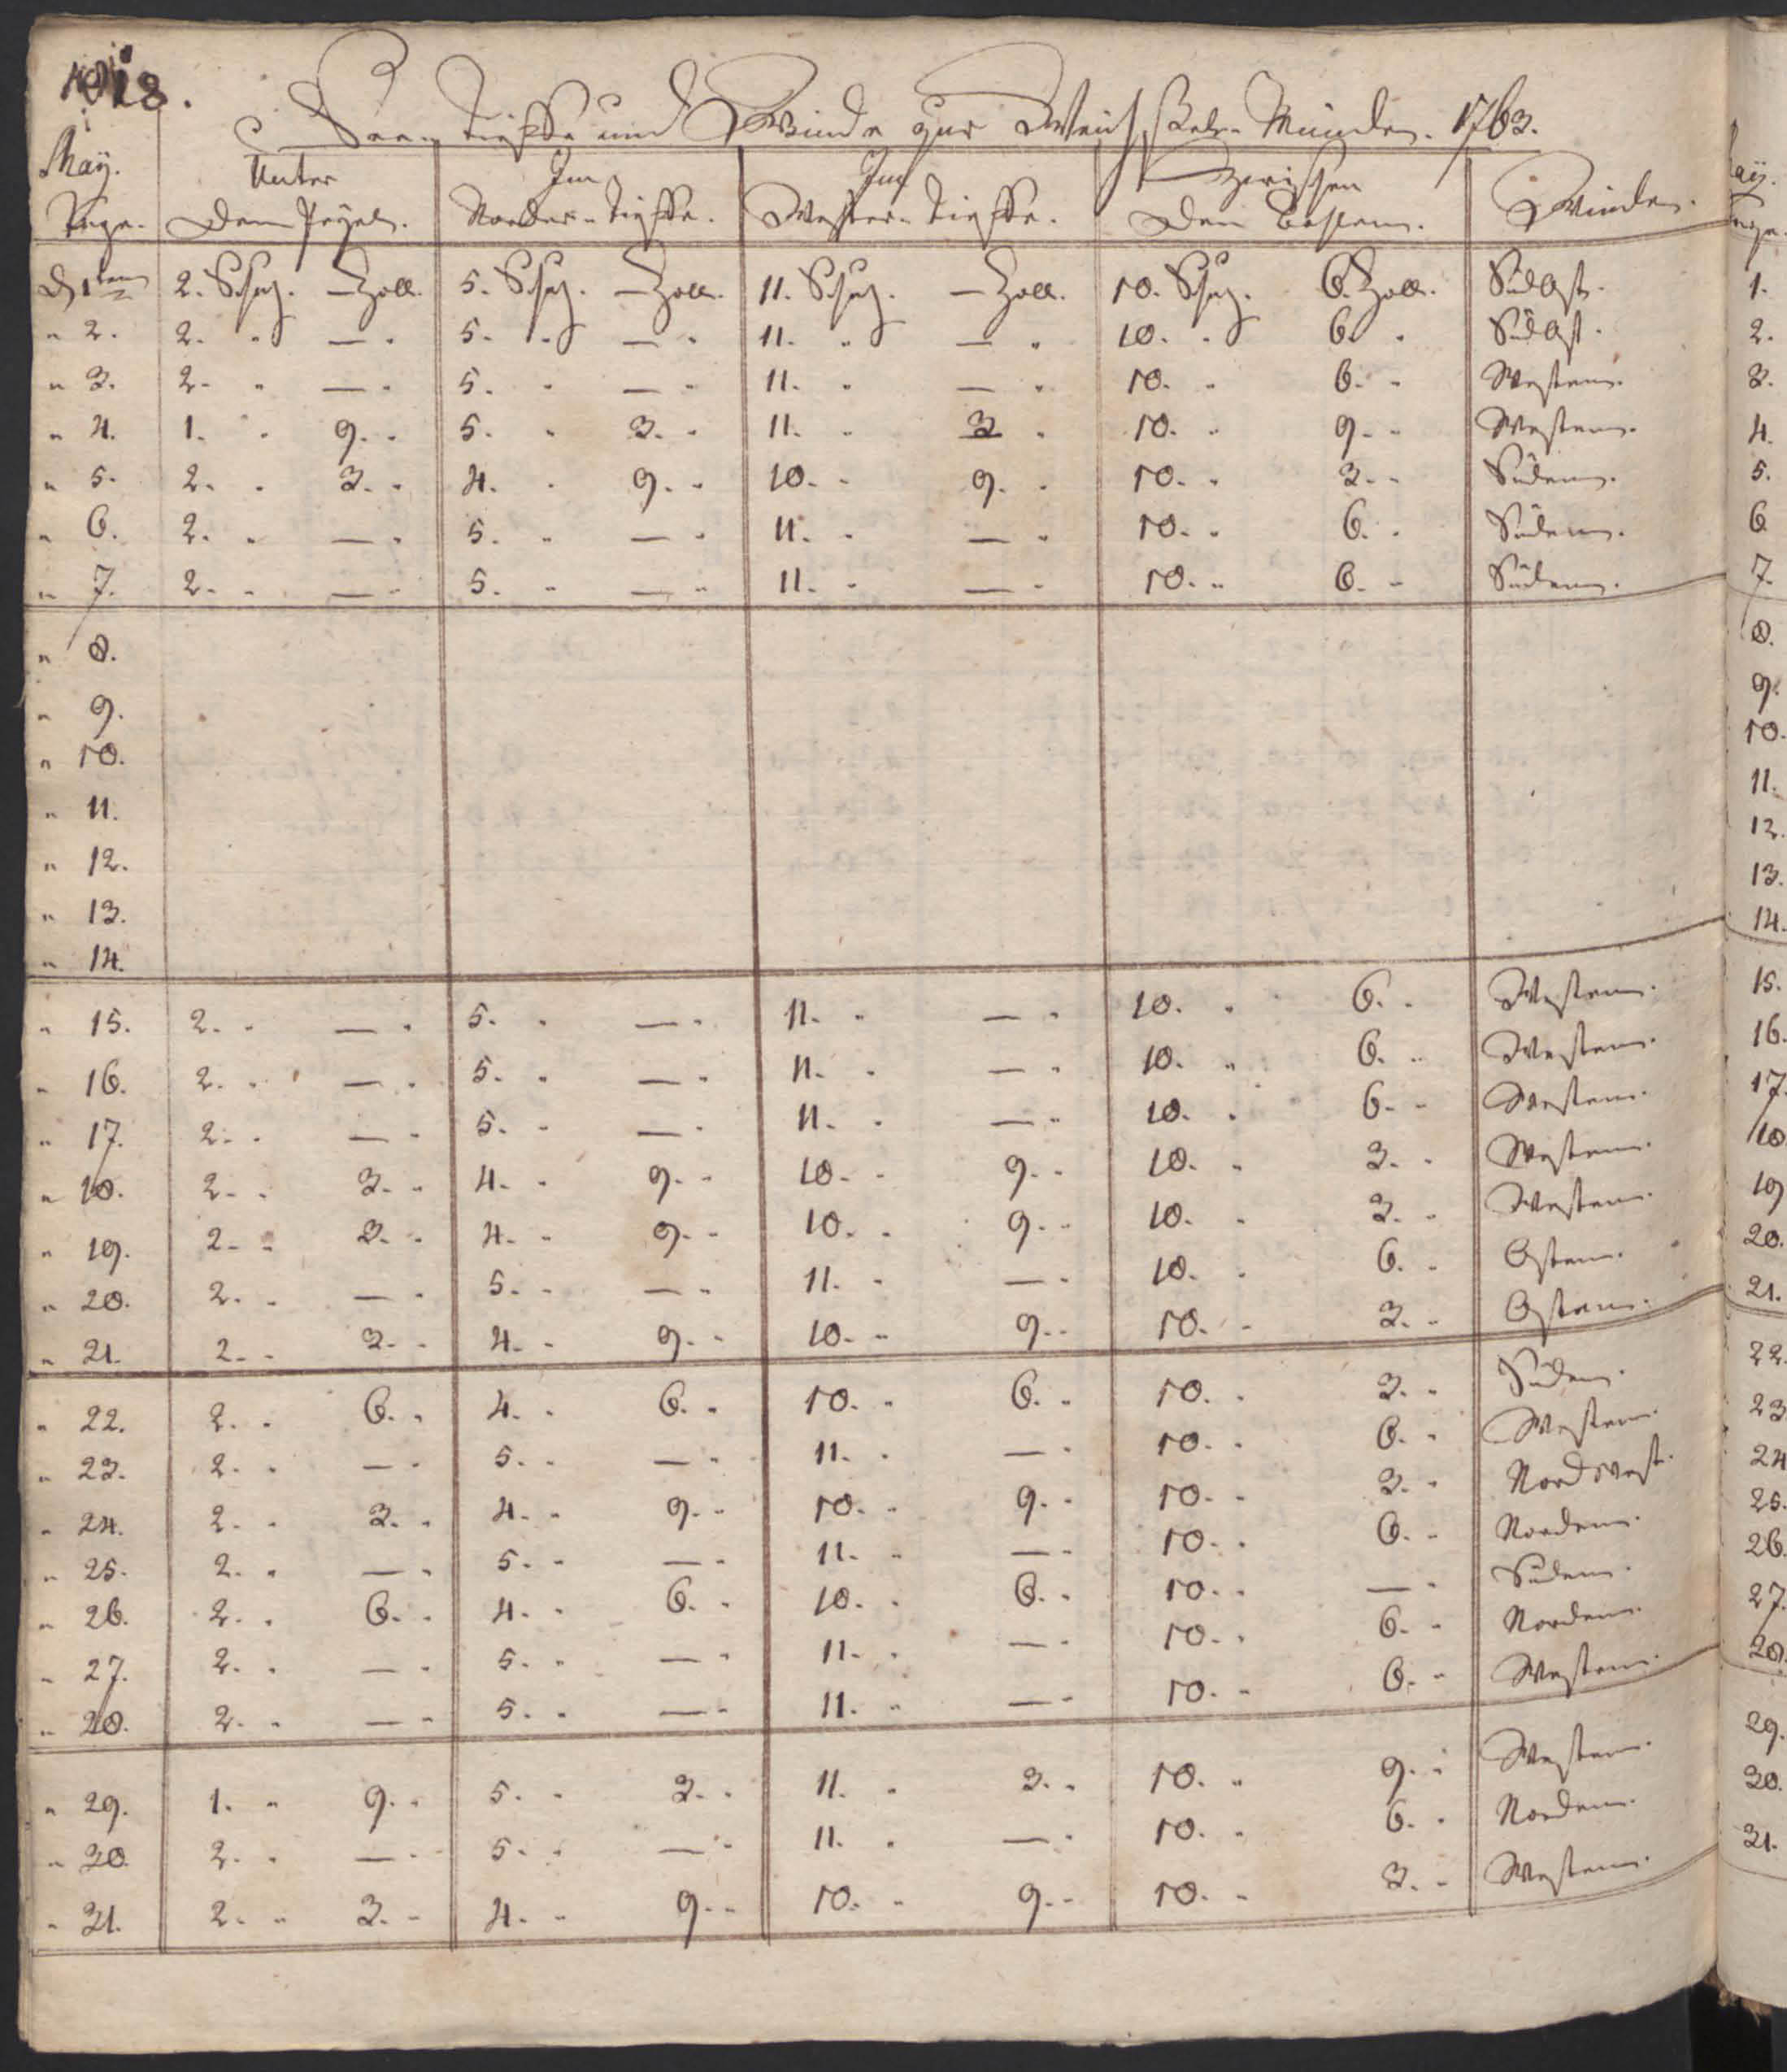 See-Tieffe und Winde zur Weichßel-Münden. 1763.
May. Unter Im Im Zwischen Winden.
Tage. Dem Peyel. Norder-Tieffe. Wester-Tieffe. Den
D 1ten 2. Schuh. — Zoll. 5. Schuh. — Zoll. 11. Schuh. — Zoll. 10. Schuh. 6. Zoll. SüdOst.
" 2. 2. " — " 5. " — " 11. " — " 10. " 6. " SüdOst.
" 3. 2. " — " 5. " — " 11. " — " 10. " 6. " Westen.
" 4. 1. " 9. " 5. " 3. " 11. " 3 " 10. " 9. " Westen.
" 5. 2. " 3. " 4. " 9. " 10. " 9. " 10. " 3. " Süden.
" 6. 2. " — " 5. " — " 11. " — " 10. " 6. " Süden.
" 7. 2. " — " 5. " — " 11. " — " 10. " 6. " Süden.
" 8.
" 9.
" 10.
" 11.
" 12.
" 13.
" 14.
" 15. 2. " — " 5. " — " 11. " — " 10. " 6. " Westen.
" 16. 2. " — " 5. " — " 11. " — " 10. " 6. " Westen.
" 17. 2. " — " 5. " — " 11. " — " 10. " 6. " Westen.
" 18. 2. " 3. " 4. " 9. " 10. " 9. " 10. " 3. " Westen.
" 19. 2. " 3. " 4. " 9. " 10. " 9. " 10. " 3. " Westen.
" 20. 2. " — " 5. " — " 11. " — " 10. " 6. " Osten.
" 21. 2. " 3. " 4. " 9. " 10. " 9. " 10. " 3. " Osten.
" 22. 2. " 6. " 4. " 6. " 10. " 6. " 10. " 3. " Süden.
" 23. 2. " — " 5. " — " 11. " — " 10. " 6. " Westen.
" 24. 2. " 3. " 4. " 9. " 10. " 9. " 10. " 3. " Nordwest.
" 25. 2. " — " 5. " — " 11. " — " 10. " 6. " Norden.
" 26. 2. " 6. " 4. " 6. " 10. " 6. " 10. " — " Süden.
" 27. 2. " — " 5. " — " 11. " — " 10. " 6. " Norden.
" 28. 2. " — " 5. " — " 11. " — " 10. " 6. " Westen.
" 29. 1. " 9. " 5. " 3. " 11. " 3. " 10. " 9. " Westen.
" 30. 2. " — " 5. " — " 11. " — " 10. " 6. " Norden.
" 31. 2. " 3. " 4. " 9. " 10. " 9. " 10. " 3. " Westen.
1.
2.
3.
4.
5.
6
7.
8.
9.
10.
11.
12.
13.
14.
15.
16.
17.
18
19
20.
21.
22.
23
24
25.
26.
27.
28.
29.
30.
31.